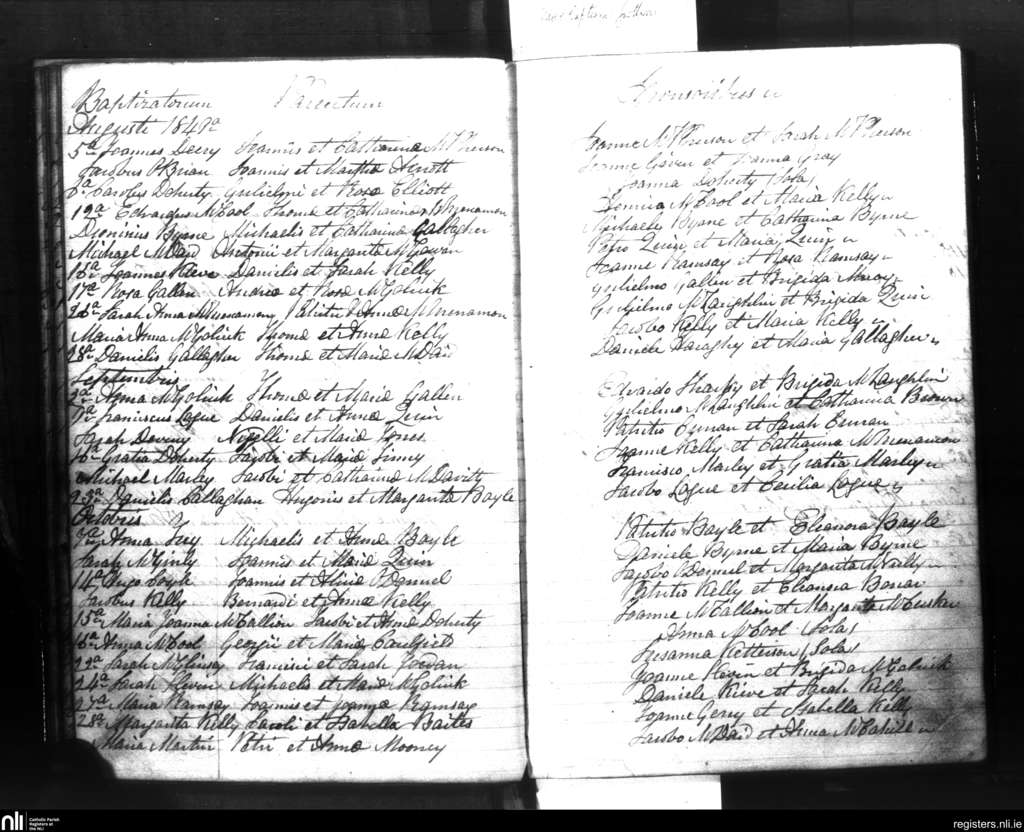 Baptizatorum Parentum
Augusti 1849
5a Joannes Deery Joannis et Catharina McPherson
Jacobus O'Brian Joannis et Martha Arnott
8a Carolus Doherty Gulielmi et Rosa Elliott
12a Edvardus McCool Thoma et Catharina
Dionisius Byrne Michaelis et Catharina Gallagher
Michael McDaid Antonii et Margarita McGowan
Joannes Kieve Danielis et Sarah Kelly
17a Rosa Gallen Andrea et Rosa McGolrick
Sarah Anna McMenamon Patritii et Anna McMenamon
Maria Anna McGolrick Thoma et Anna Kelly
28a Danielis Gallagher Thoma et Maria McDaid
Septembris
Anna McGolrick Thoma et Maria Gallen
Franciscus Logue Danielis et Anna Quin
Sarah Deveny Nigelli et Maria Jones
Gratia Doherty Jacobi et Maria Finny
Michael Marley Jacobi et Catharina McDavitt
23a Danielis Callaghan Hugonis et Margarita Boyle
Octobris
Anna Michaelis et Anna Boyle
Sarah McGinly Joannis et Maria Quin
14a Hugo Coyle Joannis et Alicia O'Donnel
Jacobus Kelly Bernardi et Anna Kelly
15a Maria Joanna McCallion Jacobi et Anna Doherty
Anna McCool Georgii et Maria Caulfield
22a Sarah McGlinsey et Sarah Gowan
24a Sarah Slevin Michaelis et Maria McGolrick
27a Maria Ramsay Joannis et Joanna Ramsay
28a Margarita Kelly Caroli et Isabella Bailes
Maria Martin Petri et Anna Mooney
Sponsoribus
Joanne McPherson et Sarah McPherson
Joanne Given et Joanna Gray
Joanna Doherty (Sola)
McCool et Maria Kelly
Michaele Byrne et Catharina Byrne
Petro Quin et Maria Quin
Joanne Ramsay et Rosa Ramsay
Gulielmo Gallen et Brigida
Gulielmo McLaughlin et Brigida Quin
Jacobo Kelly et Maria Kelly
Daniele Daraghy et Maria Gallagher
Edvardo Sharpy et Brigida McLaughlin
Gulielmo McLaughlin et Catharina Brown
Patritio Curran et Sarah Curran
Joanne Kelly et Catharina McMenamon
Francisco Marley et Gratia Marley
Jacobo Logue et Cecilia Logue
Patritio Boyle et Eleanora Boyle
Daniele Byrne et Maria Byrne
Jacobo O'Donnel et Margarita McNulty
Patritio Kelly et Eleanora Bonar
Joanne McCallion et Margarita McCusker
Anna McCool (Sola)
Susanna Patterson (Sola)
Joanne Slevin et Brigida McGolrick
Daniele Kieve et Sarah Kelly
Joanne Gerry et Isabella Kelly
Jacobo McDaid et Anna McCahill
nli
Catholic Parish
Registers at
the NLI
registers.nli.ie